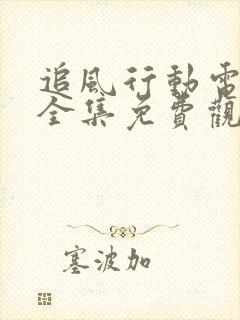 追風行動電
全集免費觀
塞波加